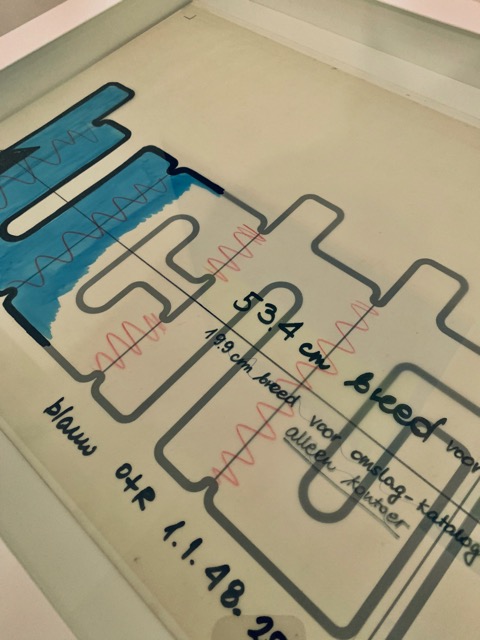 53.4 cm breed voor
19.9 cm breed voor omslag-katalog
alleen kontoer
blauw otR 1.1.48.29